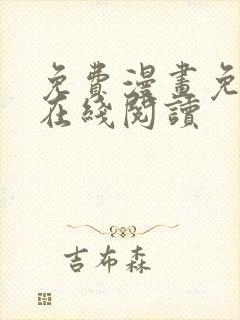 免費漫畫免
在綫閱讀
吉布森